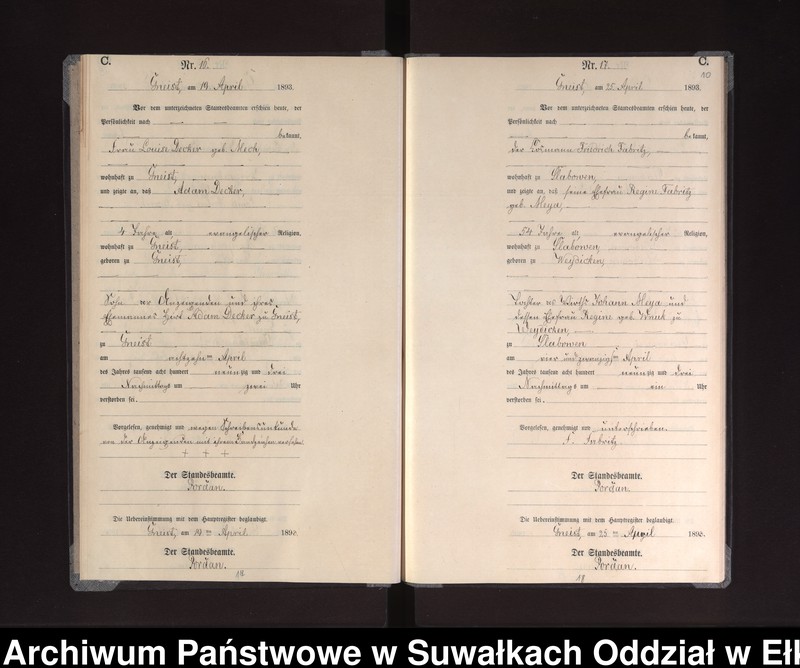 C.
Nr. 16.
Gneist, am 19. April 1893.
Vor dem unterzeichneten Standesbeamten erschien heute, der
Persönlichkeit nach
bekannt,
Frau Louise Decker geb. Mech,
wohnhaft zu Gneist,
und zeigte an, daß Adam Decker,
4 Jahre alt evangelischer Religion,
wohnhaft zu Gneist,
geboren zu Gneist,
Sohn der Anzeigenden und ihres
Ehemannes Hirt Adam Decker zu Gneist,
zu Gneist
am achtzehnten April
des Jahres tausend acht hundert neunzig und drei
Nachmittags um zwei Uhr
verstorben sei.
Vorgelesen, genehmigt und wegen Schreibensunkunde
von der Anzeigenden mit ihrem Handzeichen versehen.
+ + +
Der Standesbeamte.
Jordan.
Die Uebereinstimmung mit dem Hauptregister beglaubigt.
Gneist, am 19ten April 1893.
Der Standesbeamte.
Jordan.
Nr. 17.
C.
10
Gneist, am 25. April 1893.
Vor dem unterzeichneten Standesbeamten erschien heute, der
Persönlichkeit nach
bekannt,
der Friedrich Fabritz,
wohnhaft zu
und zeigte an, daß seine Ehefrau Regine Fabritz
geb. Meya,
54 Jahre alt evangelischer Religion,
wohnhaft zu
geboren zu Weydicken,
Tochter des Wirths Johann Meya und
dessen Ehefrau Regine geb. Wnuk zu
Weydicken,
zu
am vier und zwanzigsten April
des Jahres tausend acht hundert neunzig und drei
Nachmittags um ein Uhr
verstorben sei.
Vorgelesen, genehmigt und unterschrieben.
F. Fabritz
Der Standesbeamte.
Jordan.
Die Uebereinstimmung mit dem Hauptregister beglaubigt.
Gneist, am 25ten April 1893.
Der Standesbeamte.
Jordan.
18
Archiwum Państwowe w Suwałkach Oddział w Eł